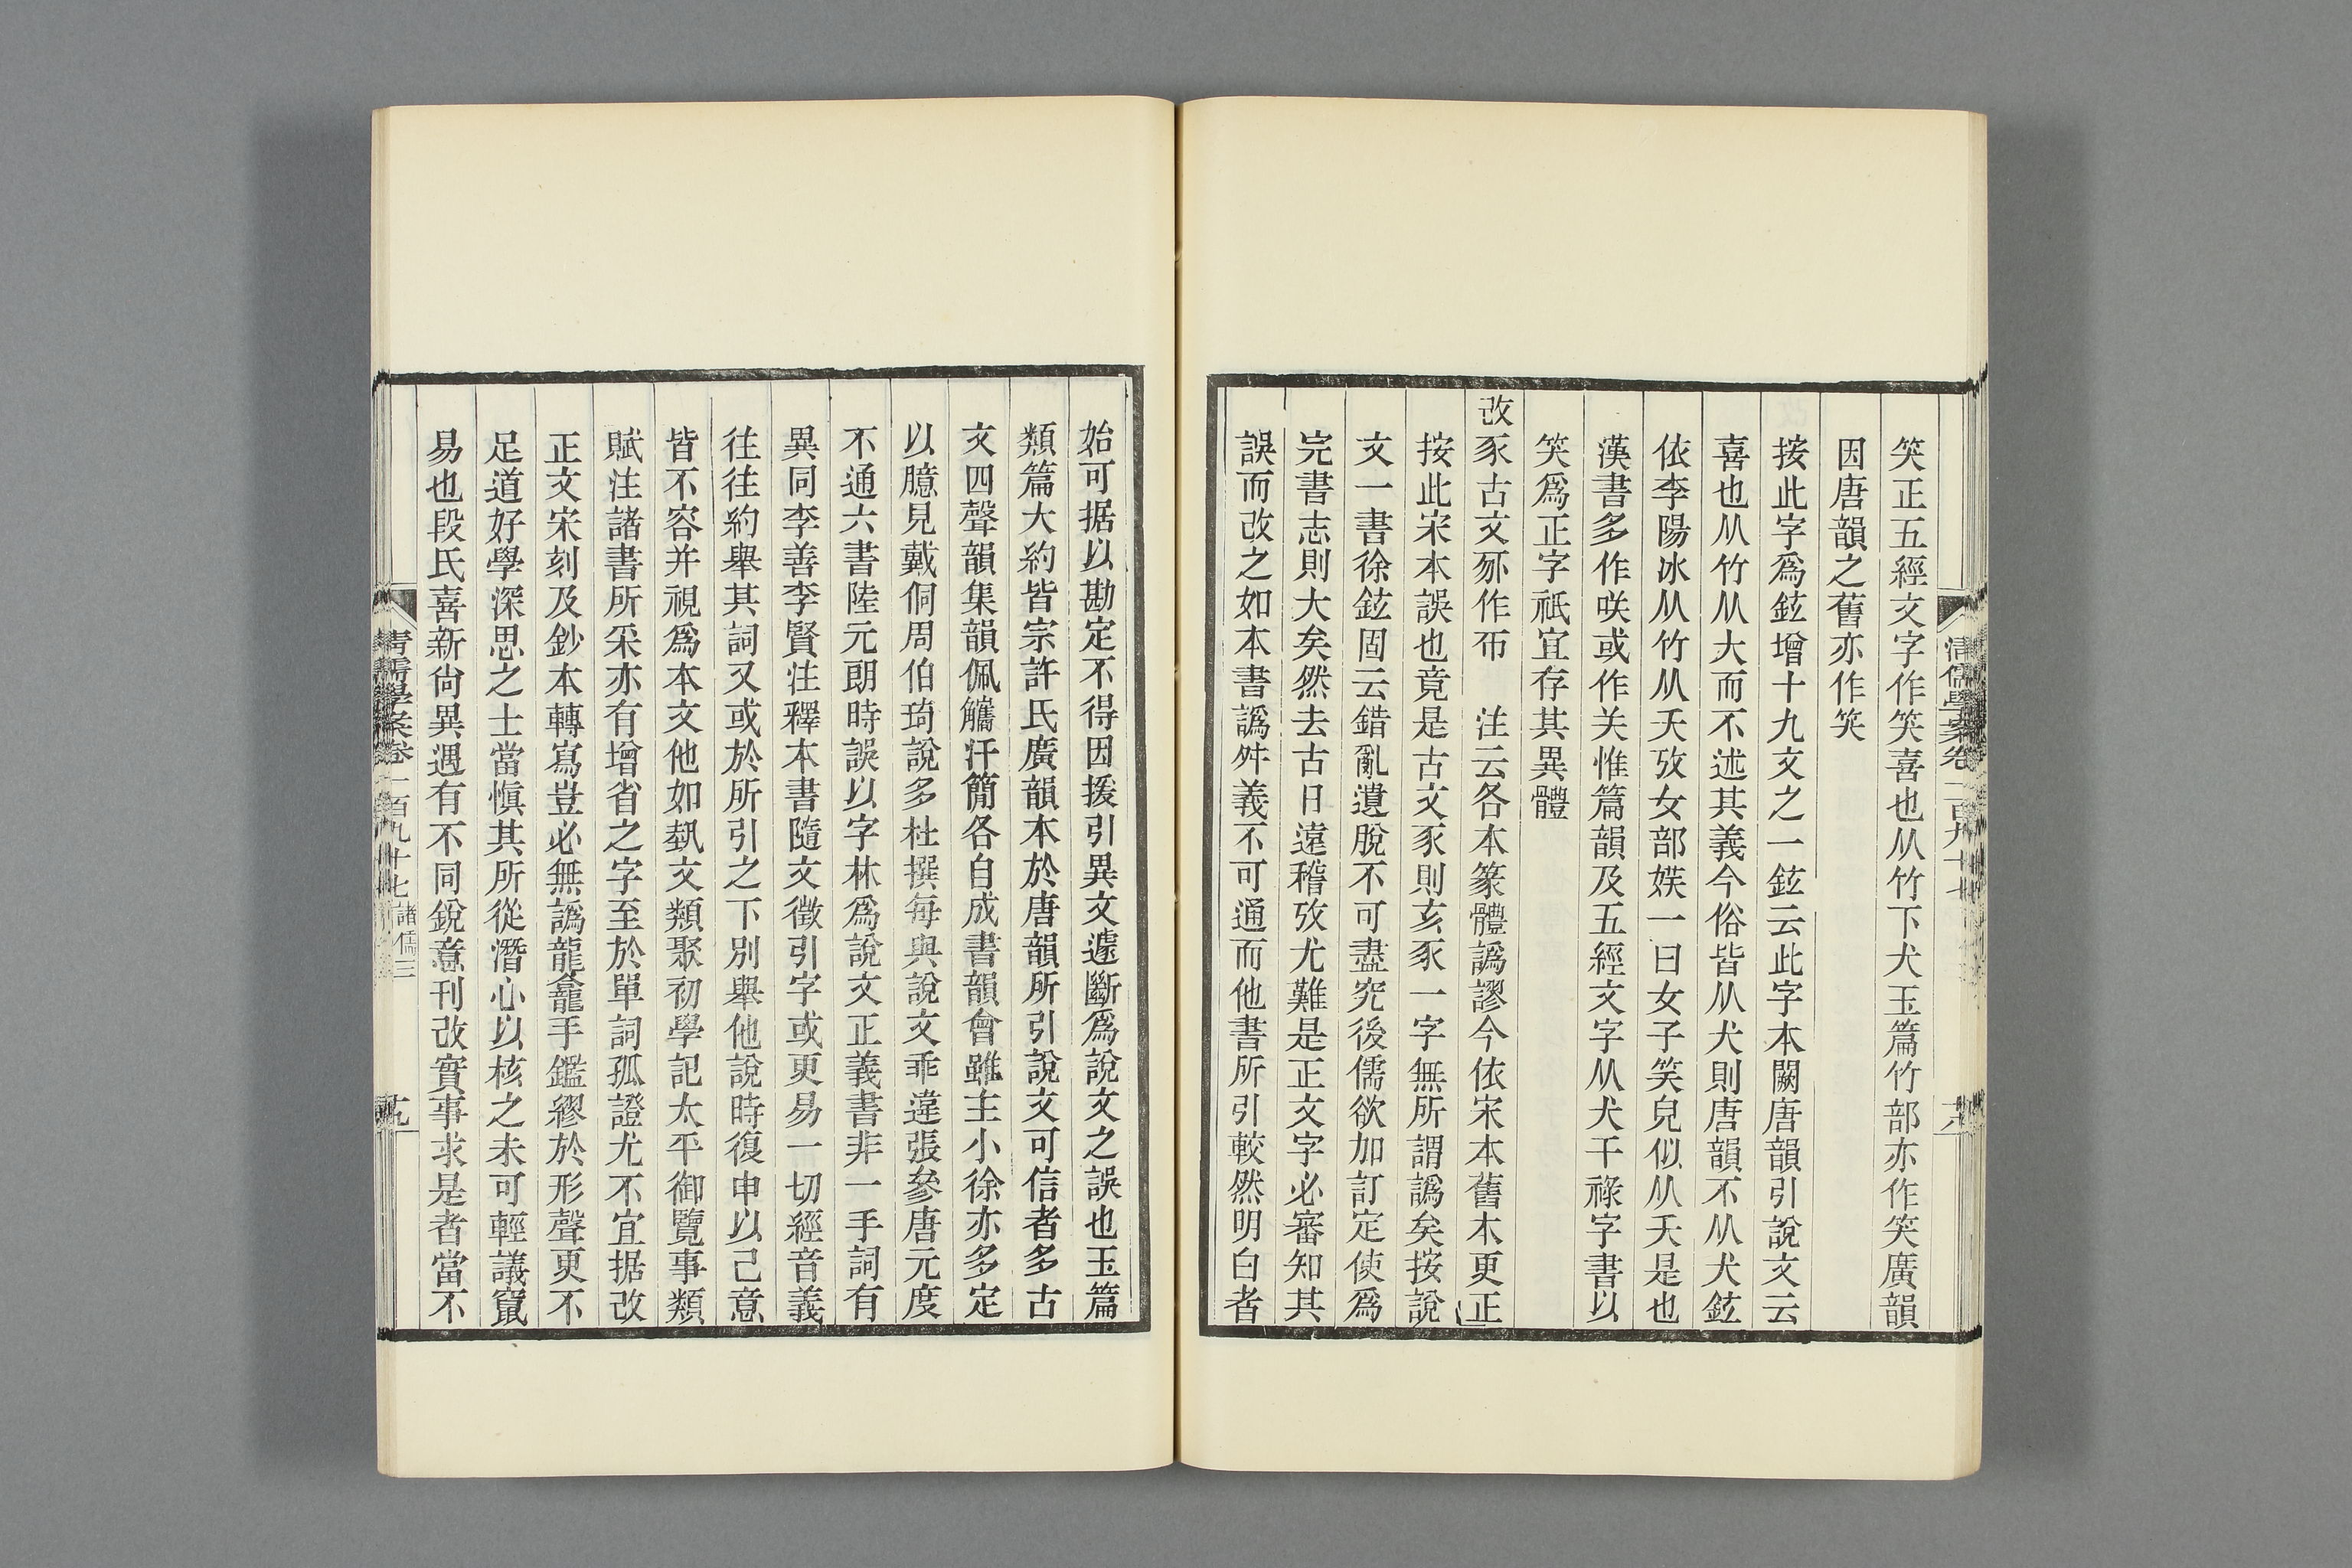 清儒學案卷一百九十七
笑正五經文字作笑喜也从竹下犬玉篇竹部亦作笑廣韻
因唐韻之舊亦作笑
按此字爲鉉增十九文之一鉉云此字本闕唐韻引說文云
喜也从竹从犬而不述其義今俗皆从犬則唐韻不从犬鉉
依李陽冰从竹从夭攷女部媄一曰女子笑皃似从夭是也
漢書多作咲或作关惟篇韻及五經文字从犬干祿字書以
笑爲正字祇宜存其異體
改豕古文豕作𠀬 注云各本篆體譌謬今依宋本舊本更正
按此宋本誤也竟是古文豕則亥豕一字無所謂譌矣按說
文一書徐鉉固云錯亂遺脫不可盡究後儒欲加訂定使爲
完書志則大矣然去古日遠稽攷尤難是正文字必審知其
誤而改之如本書譌舛義不可通而他書所引較然明白者
始可据以勘定不得因援引異文遽斷爲說文之誤也玉篇
類篇大約皆宗許氏廣韻本於唐韻所引說文可信者多古
文四聲韻集韻佩觿汗簡各自成書韻會雖主小徐亦多定
以臆見戴侗周伯琦說多杜撰每與說文乖違張參唐元度
不通六書陸元朗時誤以字林爲說文正義書非一手詞有
異同李善李賢注釋本書隨文徵引字或更易一切經音義
往往約舉其詞又或於所引之下別舉他說時復申以己意
皆不容并視爲本文他如埶文類聚初學記太平御覽事類
賦注諸書所采亦有增省之字至於單詞孤證尤不宜据改
正文宋刻及鈔本轉寫豈必無譌龍龕手鑑繆於形聲更不
足道好學深思之士當愼其所從潛心以核之未可輕議竄
易也段氏喜新尙異遇有不同銳意刊改實事求是者當不
清儒學案卷一百九十七 諸儒三 十九